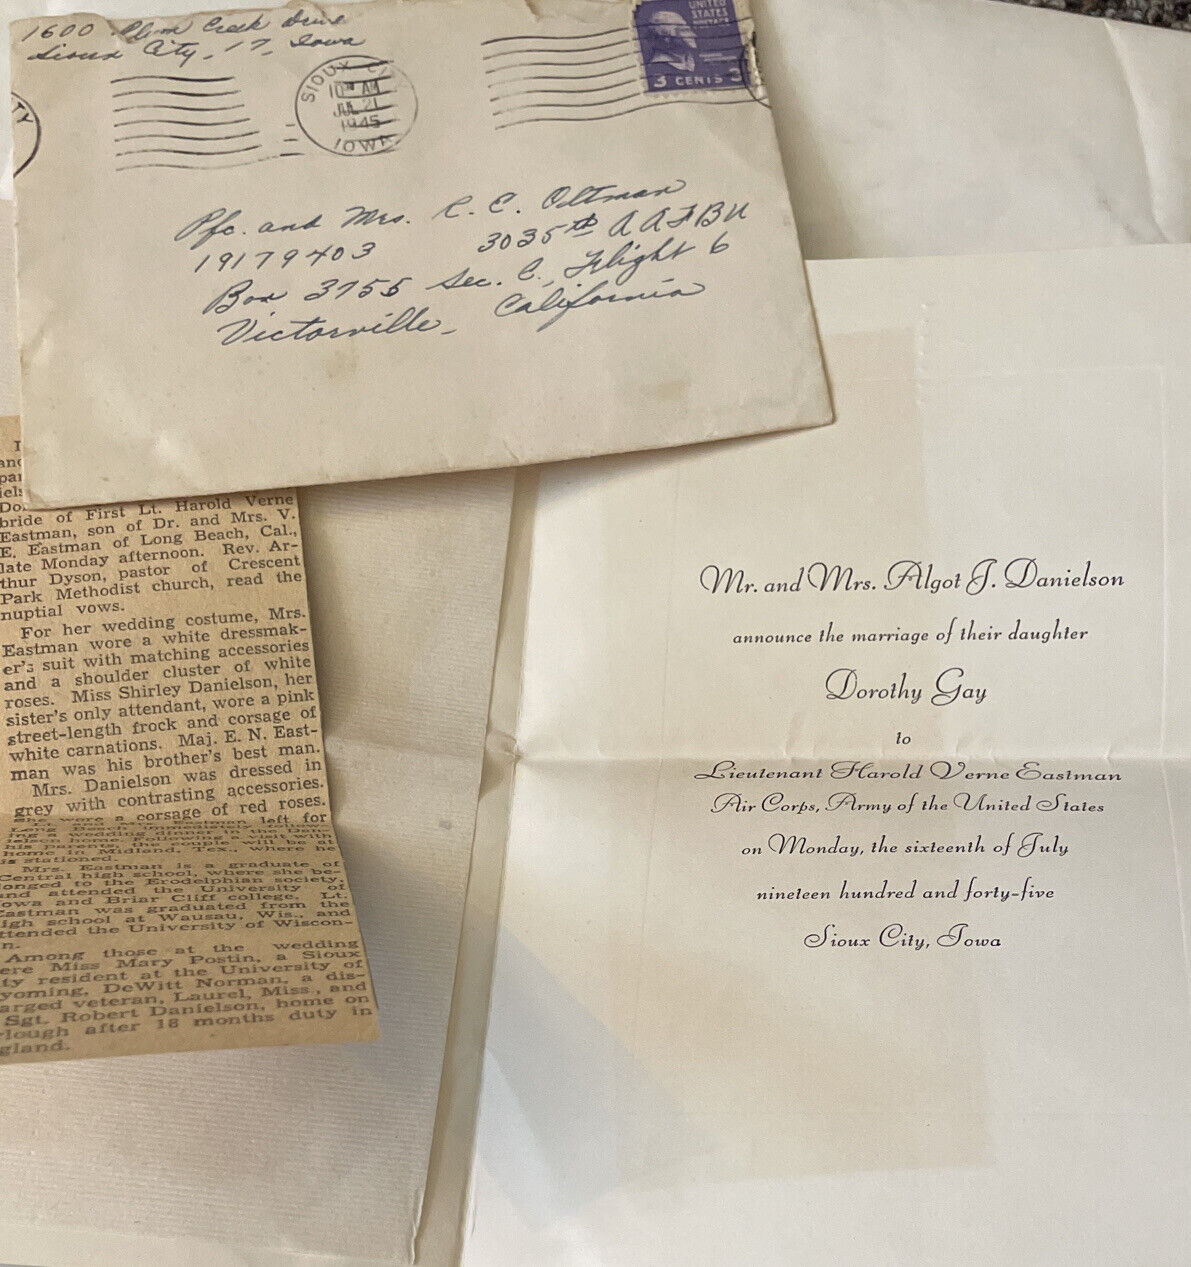 1600 Plum Creek Drive
Sioux City, 17, Iowa
SIOUX CITY
10 AM
JUL 21
1945
IOWA
UNITED
STATES
POSTAGE
3 CENTS 3
Pfc. and Mrs. C. E. Oltman
19179403 3035th AAFBU
Box 3755 Sec. C., Flight 6
Victorville, California
bride of First Lt. Harold Verne
Eastman, son of Dr. and Mrs. V.
E. Eastman of Long Beach, Cal.,
late Monday afternoon. Rev. Ar-
thur Dyson, pastor of Crescent
Park Methodist church, read the
nuptial vows.
For her wedding costume, Mrs.
Eastman wore a white dressmak-
er's suit with matching accessories
and a shoulder cluster of white
roses. Miss Shirley Danielson, her
sister's only attendant, wore a pink
street-length frock and corsage of
white carnations. Maj. E. N. East-
man was his brother's best man.
Mrs. Danielson was dressed in
grey with contrasting accessories.
She wore a corsage of red roses.
Lt. and Mrs. Eastman left for
Long Beach immediately follow-
ing a wedding dinner in the Dan-
ielson home. Following a visit with
his parents, the couple will be at
home in Midland, Tex., where he
is stationed.
Mrs. Eastman is a graduate of
Central high school, where she be-
longed to the Erodelphian society,
and attended the University of
Iowa and Briar Cliff college. Lt.
Eastman was graduated from the
high school at Wausau, Wis., and
attended the University of Wiscon-
n.
Among those at the wedding
ere Miss Mary Postin, a Sioux
ty resident at the University of
yoming, DeWitt Norman, a dis-
arged veteran, Laurel, Miss., and
Sgt. Robert Danielson, home on
rlough after 18 months duty in
gland.
Mr. and Mrs. Algot J. Danielson
announce the marriage of their daughter
Dorothy Gay
to
Lieutenant Harold Verne Eastman
Air Corps, Army of the United States
on Monday, the sixteenth of July
nineteen hundred and forty-five
Sioux City, Iowa